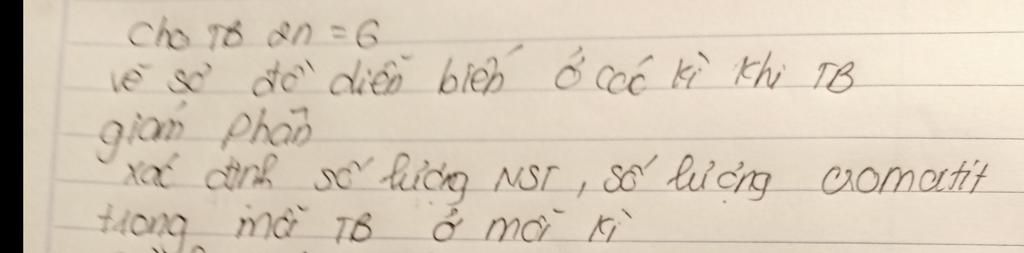 Cho TB 2n = 6
vẽ sơ đồ diễn biến ở các kì khi TB
giảm phân
xác định số lượng NST, số lượng cromatit
trong mỗi TB ở mỗi kì